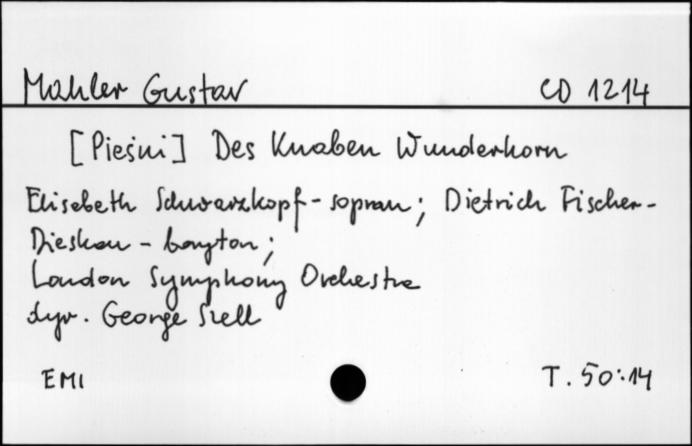 Mahler Gustav CD 1214
[Pieśni] Des Knaben Wunderhorn
Elisabeth Schwarzkopf - sopran; Dietrich Fischer-
Dieskau - baryton;
London Symphony Orchestra
dyr. George Szell
EMI T. 50:14